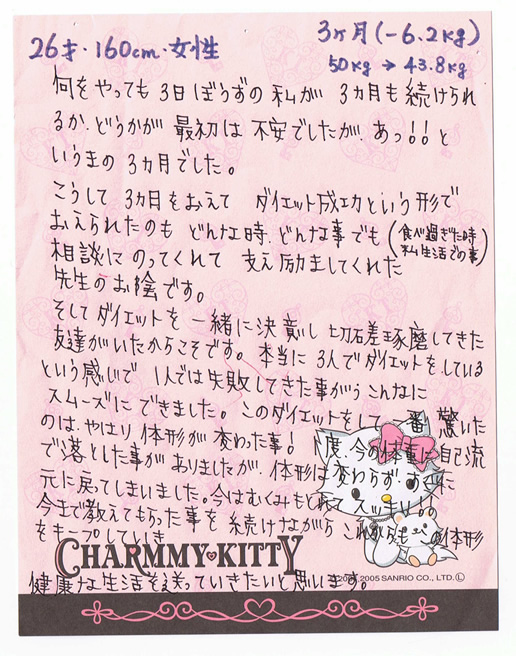 26才・160cm・女性
3ヶ月(-6.2kg)
50kg→43.8kg
何をやっても3日ぼうずの私が3カ月も続けられ
るか、どうかが最初は不安でしたが、あっ!!と
いうまの3カ月でした。
こうして3カ月をおえてダイエット成功という形で
おえられたのもどんな時、どんな事でも(食べ過ぎた時 私生活での事)
相談にのってくれて支え励ましてくれた
先生のお陰です。
そしてダイエットを一緒に決意し切磋琢磨してきた
友達がいたからこそです。本当に3人でダイエットをしている
という感じで1人では失敗してきた事がうこんなに
スムーズにできました。このダイエットをして一番驚いた
のは、やはり体形が変わった事!一度、今の体重に自己流
で落とした事がありましたが、体形は変わらずすぐに
元に戻ってしまいました。今はむくみもとれてスッキリ!!
今まで教えてもらった事を続けながらこれからもこの体形
をキープしていき
CHARMMY KITTY
2005 SANRIO CO., LTD. Ⓛ
健康な生活を送っていきたいと思います。